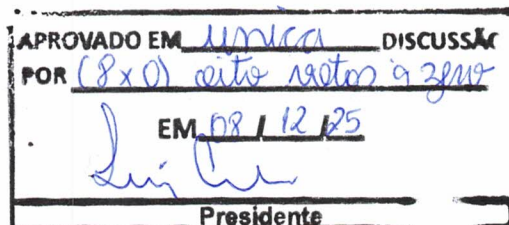 APROVADO EM única DISCUSSÃO
POR (8x0) oito votos a zero
EM 08 / 12 / 25
Presidente